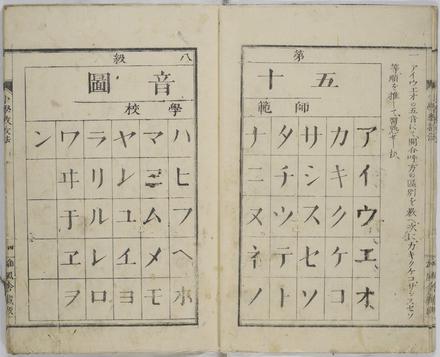 一 アイウエオの五音にて開合呼方の區別を教へ次にカキクケコサシスセソ
等順を推して習熟せしむ
第
五十
師範
アイウエオ
カキクケコ
サシスセソ
タチツテト
ナニヌネノ
八級
音圖
學校
ハヒフヘホ
マミムメモ
ヤユヨ
ラリルレロ
ワヰ于ヱヲ
ン
小學教授法
四